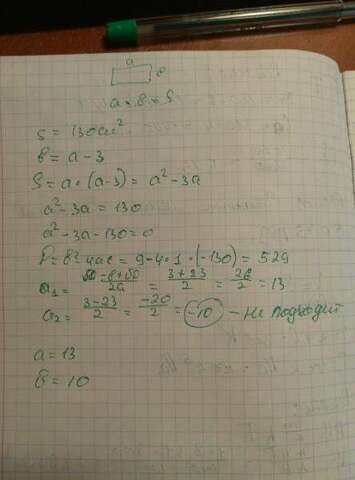 a
в
a × в = S
S = 130 см²
в = a - 3
S = a • (a-3) = a² - 3a
a² - 3a = 130
a² - 3a - 130 = 0
D = в² - 4ac = 9 - 4 • 1 • (-130) = 529
a₁ = -в+√D/2a = 3+23/2 = 26/2 = 13
a₂ = 3-23/2 = -20/2 = -10 - не подходит
a = 13
в = 10